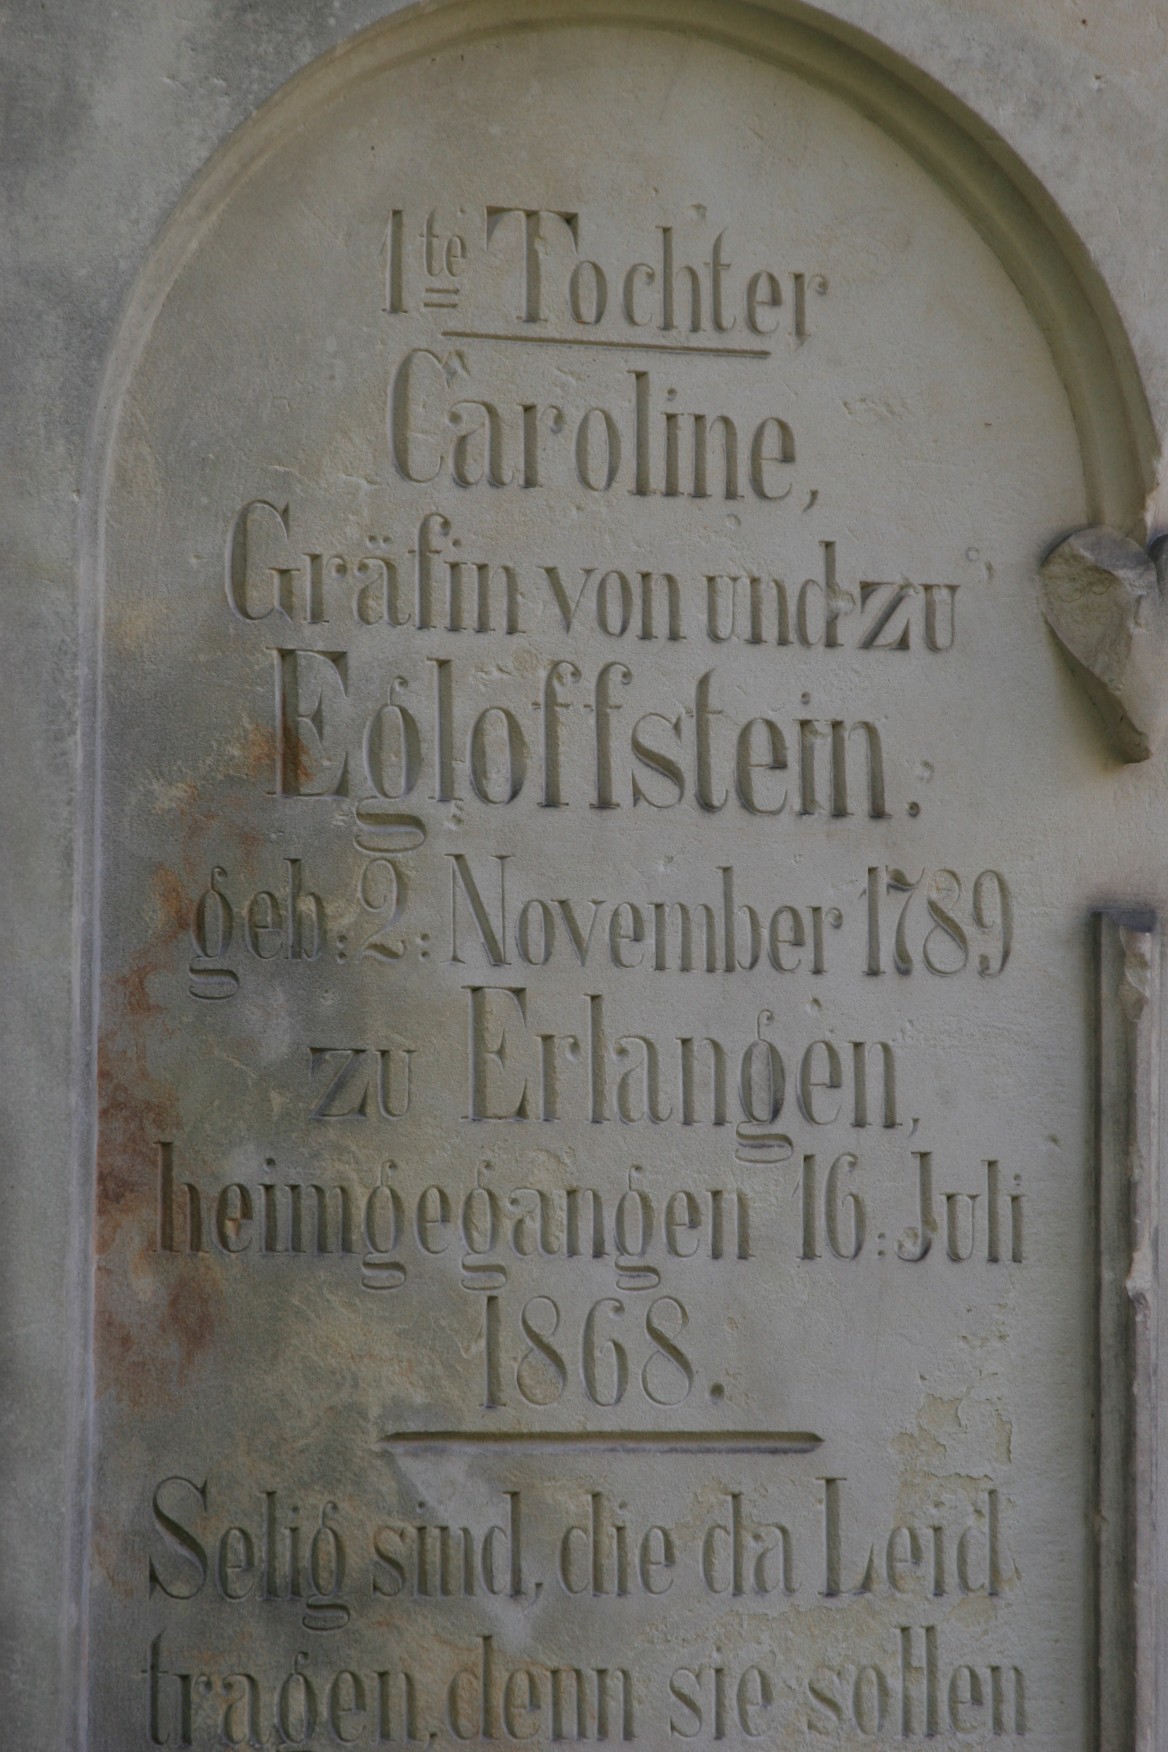 1te Tochter
Caroline,
Gräfin von und zu
Egloffstein.
geb: 2: November 1789
zu Erlangen,
heimgegangen 16: Juli
1868.
Selig sind, die da Leid
tragen, denn sie sollen